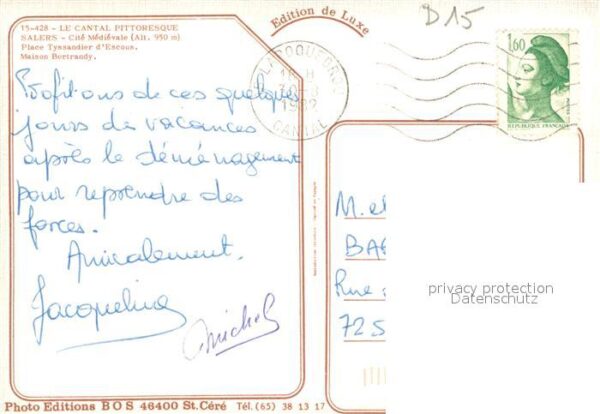 15-428 - LE CANTAL PITTORESQUE
SALERS - Cité Médiévale (Alt. 950 m)
Place Tyssandier d'Escous.
Maison Bertrandy.
Edition de Luxe
D15
1,60
REPUBLIQUE FRANÇAISE
LAROQUEBROU
1982
CANTAL
Profitons de ces quelques
jours de vacances
après le déménagement
pour reprendre des
forces.
Amicalement.
Jacqueline
Michel
M. et
BA
Rue
725
privacy protection
Datenschutz
Photo Editions BOS 46400 St. Céré Tél. (65) 38 13 17